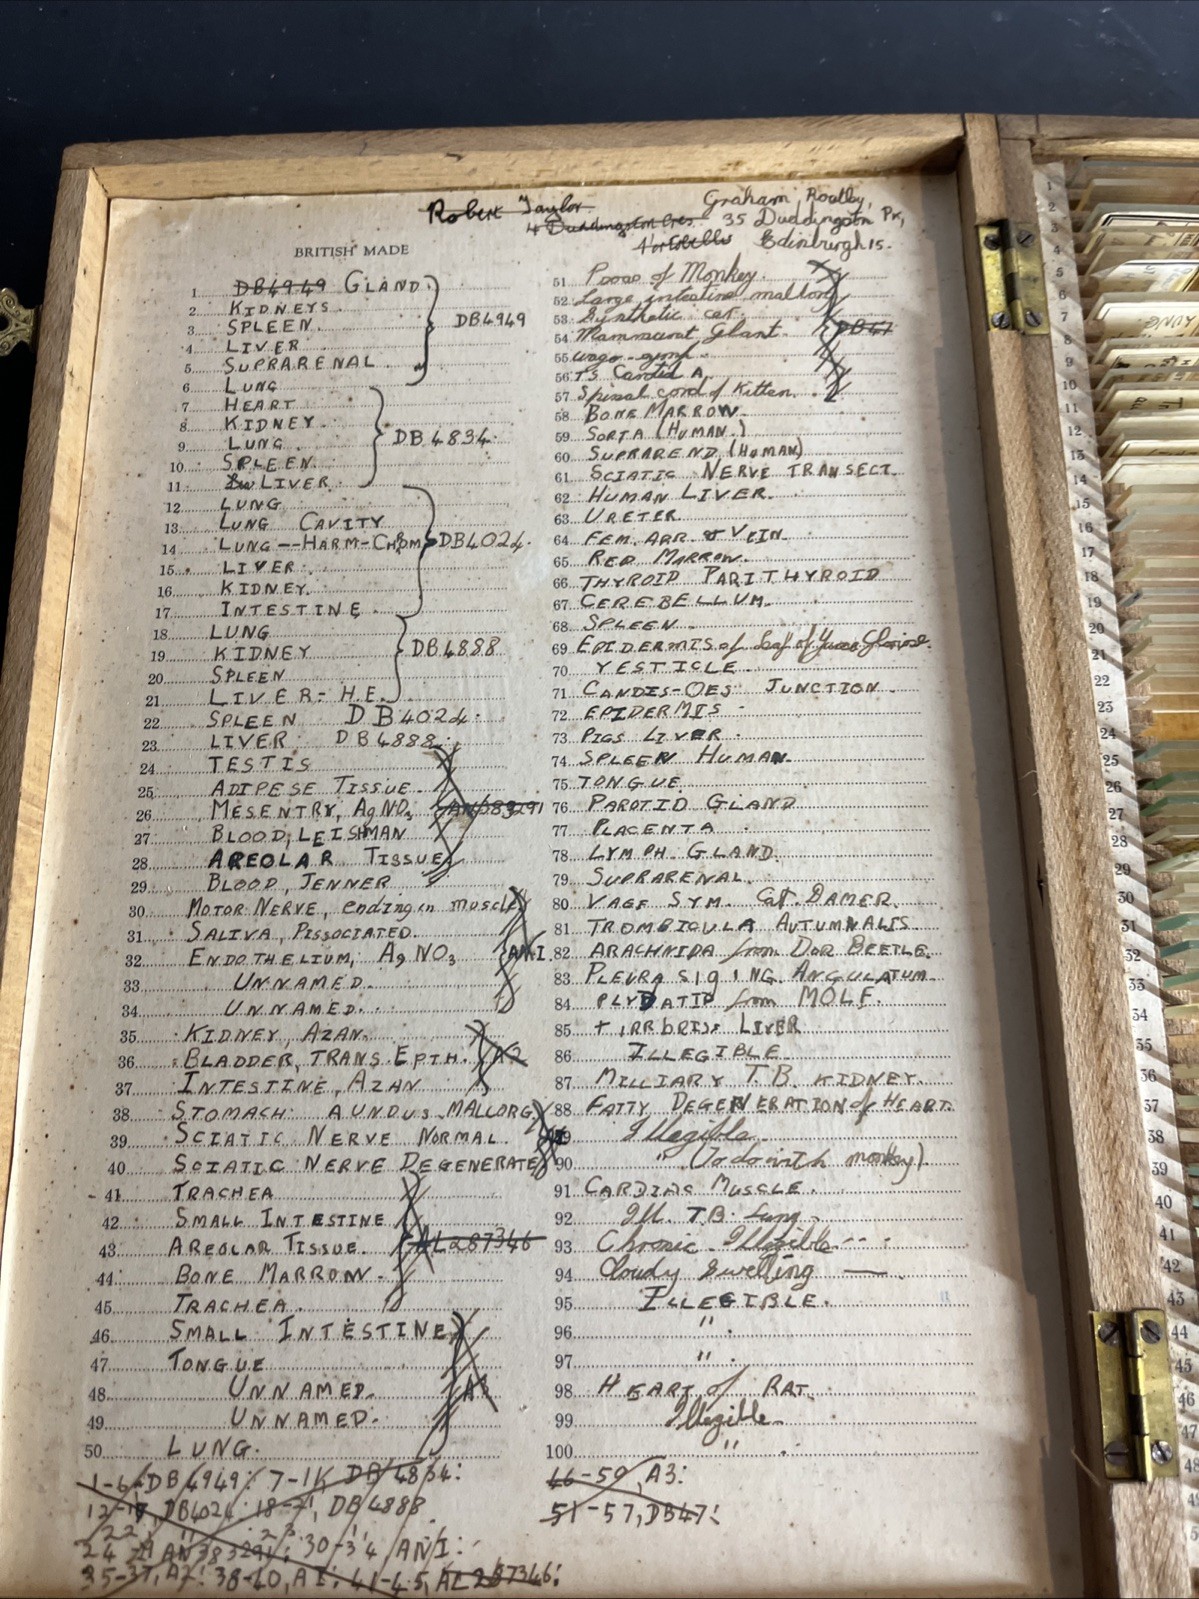 Robert Taylor
4 Duddingston Cres.
Portobello
Graham, Routley,
35 Duddingston Pk,
Edinburgh 15.
BRITISH MADE
1 DB4949 GLAND.
2 KIDNEYS.
3 SPLEEN.
4 LIVER
5 SUPRARENAL
DB4949
6 LUNG
7 HEART
8 KIDNEY.
9 LUNG
10 SPLEEN.
11 LIVER.
DB4834.
12 LUNG
13 LUNG CAVITY
14 LUNG--HARM-CHROM
15 LIVER.
16 KIDNEY.
17 INTESTINE.
DB4024.
18 LUNG
19 KIDNEY
20 SPLEEN
21 LIVER- H.E.
DB4888
22 SPLEEN DB4024.
23 LIVER DB4888.
24 TESTIS
25 ADIPESE TISSUE.
26 MESENTRY, AgNO3
27 BLOOD, LEISHMAN
28 AREOLAR TISSUE
AN383291
29 BLOOD, JENNER
30 MOTOR NERVE, ending in muscle
31 SALIVA, PISSOCIATED.
32 ENDOTHELIUM, AgNO3
33 UNNAMED.
34 UNNAMED.
AN1
35 KIDNEY, AZAN.
36 BLADDER, TRANS. EPTH.
37 INTESTINE, AZAN
A2
38 STOMACH AUNDUS. MALLORG.
39 SCIATIC NERVE NORMAL.
40 SCIATIC NERVE DEGENERATE
41 TRACHEA
42 SMALL INTESTINE
43 AREOLAR TISSUE.
44 BONE MARROW.
45 TRACHEA.
AL287346
46 SMALL INTESTINE
47 TONGUE
48 UNNAMED.
49 UNNAMED.
50 LUNG.
A3
51 Pooos of Monkey.
52 Large intestine mallory
53 Synthetic cat.
54 Mammount Glant.
55
56 T.S.
57 Spinal cord of Kitten.
DB47
58 BONE MARROW.
59 SORTA (HUMAN.)
60 SUPRAREND, (HUMAN)
61 SCIATIC NERVE TRANSECT.
62 HUMAN LIVER.
63 URETER.
64 FEM. ARR & VEIN.
65 RED MARROW.
66 THYROID PARITHYROID
67 CEREBELLUM.
68 SPLEEN
69 EPIDERMIS of Leaf of Yucca Gloriosa.
70 YESTICLE.
71 CANDIS-OES JUNCTION
72 EPIDERMIS
73 PIGS LIVER.
74 SPLEEN HUMAN.
75 TONGUE.
76 PAROTID GLAND
77 PLACENTA
78 LYMPH. GLAND.
79 SUPRARENAL.
80 VAGF SYM. CAT. DAMER.
81 TROMBICULA AUTUMNALIS.
82 ARACHNIDA from DOR BEETLE.
83 PLEURASIGING. ANGULATUM
84 PLYDATID from MOLE.
85 LIVER
86 ILLEGIBLE
87 MILLIARY T.B. KIDNEY.
88 FATTY DEGENERATION of HEART.
89 Illegible
90 " monkey).
91 CARDIAC MUSCLE.
92 Ill. T.B. Lung.
93 Chronic Illegible
94 Cloudy Swelling
95 ILLEGIBLE.
96 "
97 "
98 HEART of RAT.
99 Illegible
100 "
1-6, DB4949: 7-11, DB4834:
12-17, DB4024: 18-21, DB4888
22, " 23.
24 AN383291: 30-34, AN1:
35-37, A2: 38-40, A1: 41-45, AL287346:
46-50, A3:
51-57, DB47:
1
2
3
4
5
6
7
8
9
10
11
12
13
14
15
16
17
18
19
20
21
22
23
24
25
26
27
28
29
30
31
32
33
34
35
36
37
38
39
40
41
42
43
44
45
46
47
48
49